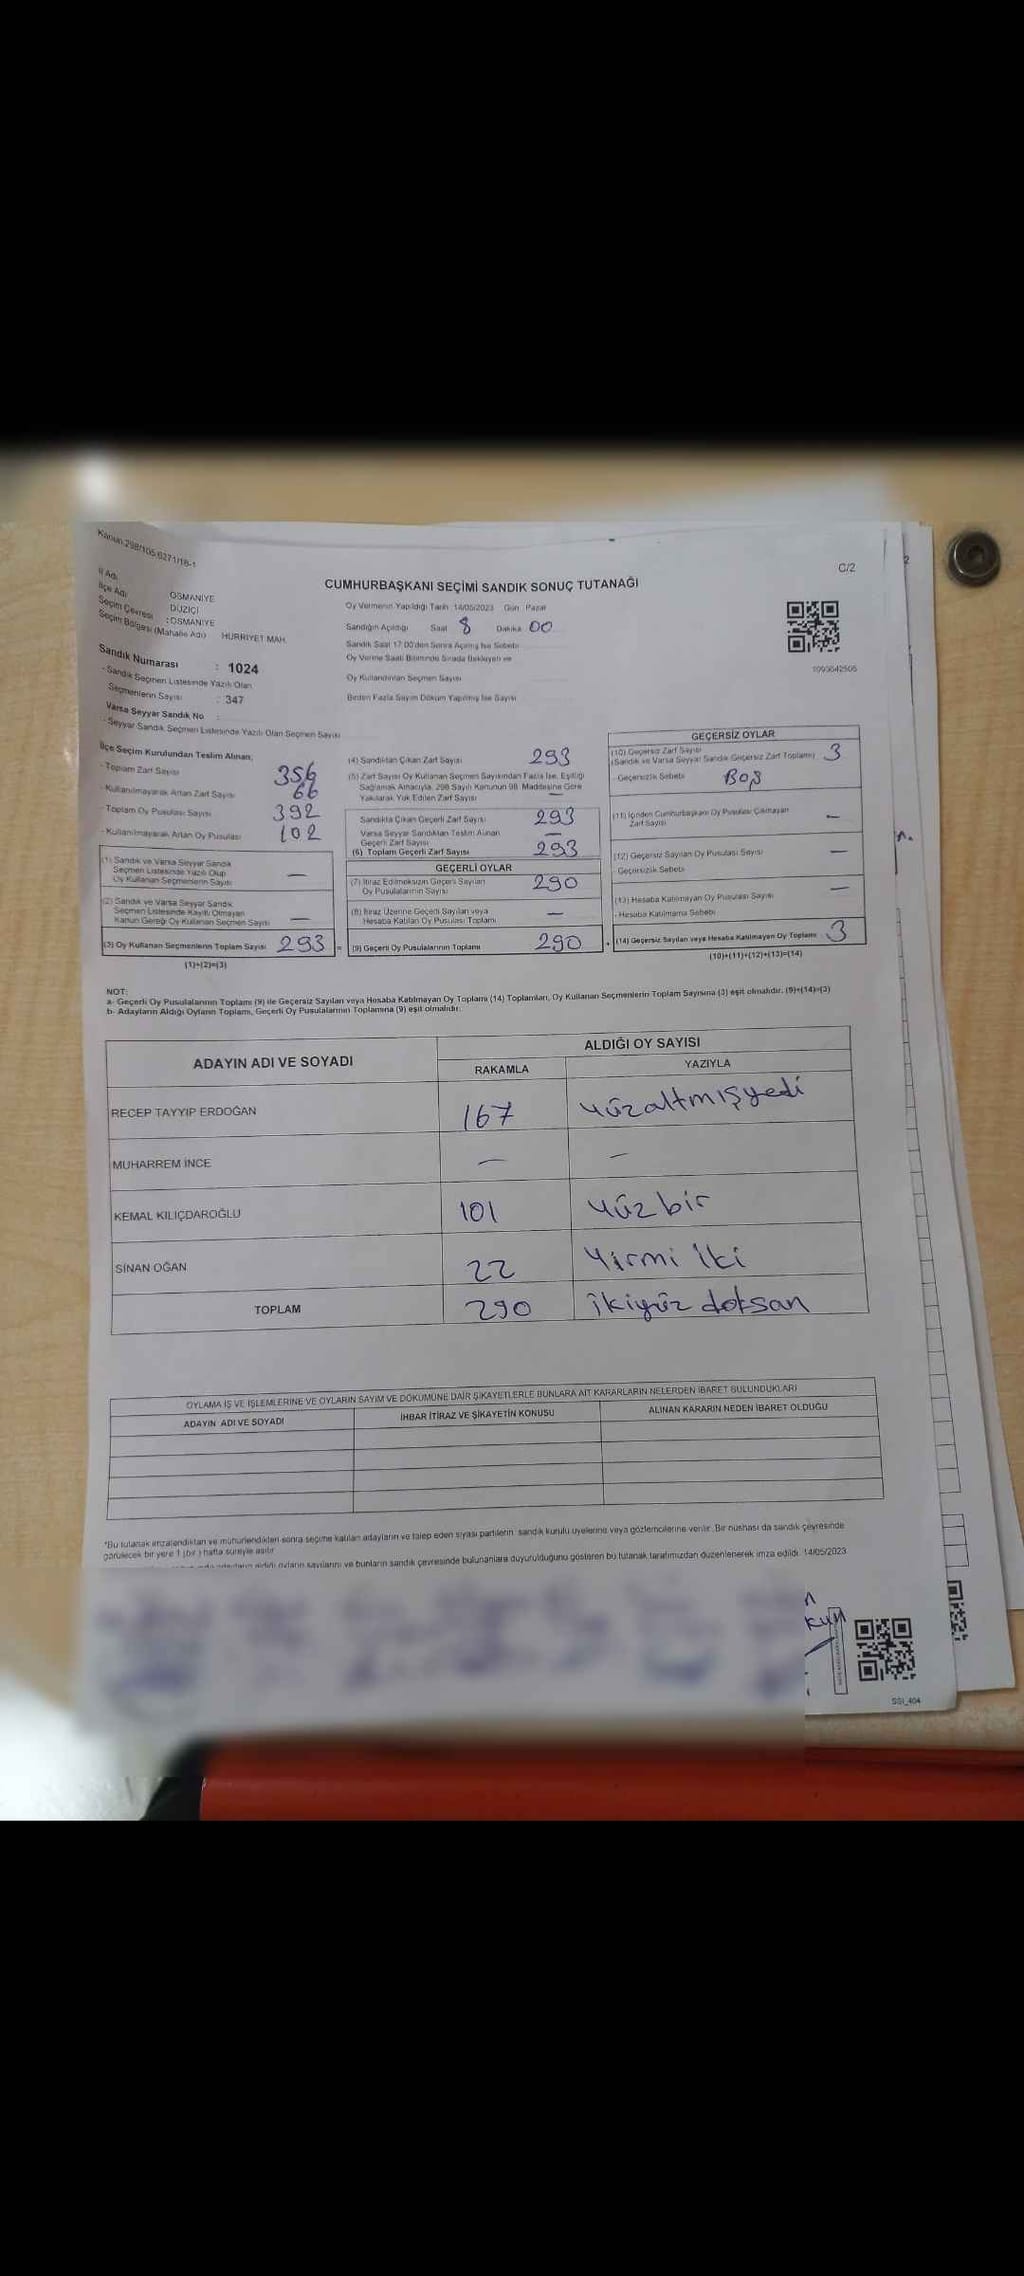 Kanun:298/105,6271/18-1
C/2
CUMHURBAŞKANI SEÇİMİ SANDIK SONUÇ TUTANAĞI
İl Adı
İlçe Adı OSMANİYE
Seçim Çevresi DÜZİÇİ
:OSMANİYE
Seçim Bölgesi (Mahalle Adı) HÜRRİYET MAH.
Sandık Numarası : 1024
- Sandık Seçmen Listesinde Yazılı Olan
Seçmenlerin Sayısı : 347
Varsa Seyyar Sandık No :
- Seyyar Sandık Seçmen Listesinde Yazılı Olan Seçmen Sayısı
Oy Vermenin Yapıldığı Tarih 14/05/2023 Gün Pazar
Sandığın Açıldığı Saat 8 Dakika 00
Sandık Saat 17:00'den Sonra Açılmış İse Sebebi
Oy Verme Saati Bitiminde Sırada Bekleyen ve
Oy Kullandırılan Seçmen Sayısı
Birden Fazla Sayım Döküm Yapılmış İse Sayısı
İlçe Seçim Kurulundan Teslim Alınan;
- Toplam Zarf Sayısı 356
- Kullanılmayarak Artan Zarf Sayısı 66
- Toplam Oy Pusulası Sayısı 392
- Kullanılmayarak Artan Oy Pusulası 102
(1) Sandık ve Varsa Seyyar Sandık
Seçmen Listesinde Yazılı Olup
Oy Kullanan Seçmenlerin Sayısı —
(2) Sandık ve Varsa Seyyar Sandık
Seçmen Listesinde Kayıtlı Olmayan
Kanun Gereği Oy Kullanan Seçmen Sayısı —
(3) Oy Kullanan Seçmenlerin Toplam Sayısı 293 =
(1)+(2)=(3)
(4) Sandıktan Çıkan Zarf Sayısı 293
(5) Zarf Sayısı Oy Kullanan Seçmen Sayısından Fazla İse, Eşitliği
Sağlamak Amacıyla, 298 Sayılı Kanunun 98. Maddesine Göre
Yakılarak Yok Edilen Zarf Sayısı —
Sandıkta Çıkan Geçerli Zarf Sayısı 293
Varsa Seyyar Sandıktan Teslim Alınan
Geçerli Zarf Sayısı —
(6) Toplam Geçerli Zarf Sayısı 293
GEÇERLİ OYLAR
(7) İtiraz Edilmeksizin Geçerli Sayılan
Oy Pusulalarının Sayısı 290
(8) İtiraz Üzerine Geçerli Sayılan veya
Hesaba Katılan Oy Pusulası Toplamı —
(9) Geçerli Oy Pusulalarının Toplamı 290 +
GEÇERSİZ OYLAR
(10) Geçersiz Zarf Sayısı
(Sandık ve Varsa Seyyar Sandık Geçersiz Zarf Toplamı) 3
- Geçersizlik Sebebi Boş
(11) İçinden Cumhurbaşkanı Oy Pusulası Çıkmayan
Zarf Sayısı —
(12) Geçersiz Sayılan Oy Pusulası Sayısı —
Geçersizlik Sebebi
(13) Hesaba Katılmayan Oy Pusulası Sayısı —
- Hesaba Katılmama Sebebi
(14) Geçersiz Sayılan veya Hesaba Katılmayan Oy Toplamı 3
(10)+(11)+(12)+(13)=(14)
NOT:
a- Geçerli Oy Pusulalarının Toplamı (9) ile Geçersiz Sayılan veya Hesaba Katılmayan Oy Toplamı (14) Toplamları, Oy Kullanan Seçmenlerin Toplam Sayısına (3) eşit olmalıdır. (9)+(14)=(3)
b- Adayların Aldığı Oyların Toplamı, Geçerli Oy Pusulalarının Toplamına (9) eşit olmalıdır.
ADAYIN ADI VE SOYADI ALDIĞI OY SAYISI
RAKAMLA YAZIYLA
RECEP TAYYİP ERDOĞAN 167 yüzaltmışyedi
MUHARREM İNCE — —
KEMAL KILIÇDAROĞLU 101 yüz bir
SİNAN OĞAN 22 Yirmi İki
TOPLAM 290 ikiyüz doksan
OYLAMA İŞ VE İŞLEMLERİNE VE OYLARIN SAYIM VE DÖKÜMÜNE DAİR ŞİKAYETLERLE BUNLARA AİT KARARLARIN NELERDEN İBARET BULUNDUKLARI
ADAYIN ADI VE SOYADI İHBAR İTİRAZ VE ŞİKAYETİN KONUSU ALINAN KARARIN NEDEN İBARET OLDUĞU
*Bu tutanak imzalandıktan ve mühürlendikten sonra seçime katılan adayların ve talep eden siyasi partilerin sandık kurulu üyelerine veya gözlemcilerine verilir. Bir nüshası da sandık çevresinde
görülecek bir yere 1 (bir) hafta süreyle asılır.
aldığı oyların sayılarını ve bunların sandık çevresinde bulunanlara duyurulduğunu gösteren bu tutanak tarafımızdan düzenlenerek imza edildi. 14/05/2023